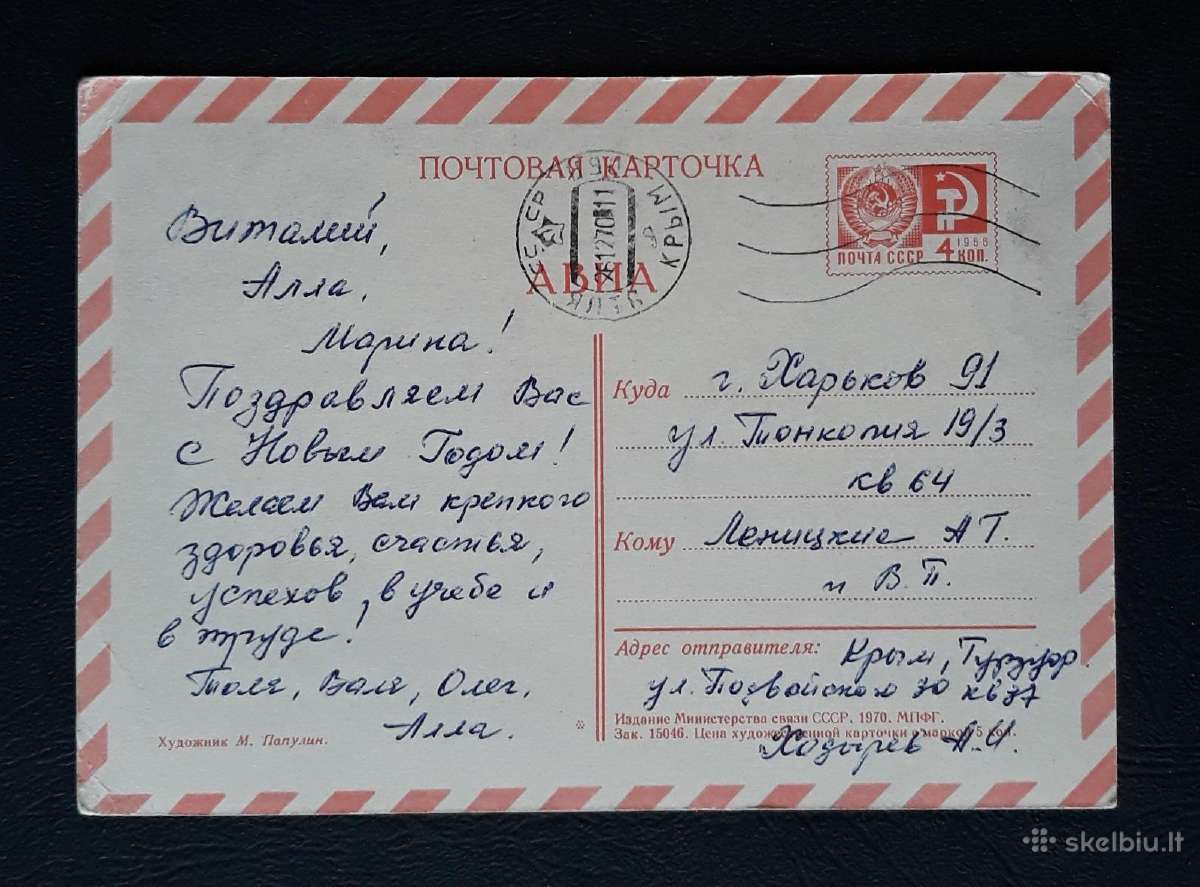 ПОЧТОВАЯ КАРТОЧКА
АВИА
26127011
КРЫМ
ПОЧТА СССР 4 КОП.
1966
Виталий,
Алла,
Марина!
Поздравляем Вас
с Новым Годом!
Желаем Вам крепкого
здоровья, счастья,
успехов, в учебе и
в труде!
Толя, Валя, Олег,
Алла.
Художник М. Папулин.
Куда г. Харьков 91
ул. Тонкопия 19/3
кв 64
Кому Леницкие А Г.
и В. П.
Адрес отправителя: Крым, Гурзуф
ул. Подвойского 30 кв 37
Издание Министерства связи СССР. 1970. МПФГ.
Зак. 15046. Цена художественной карточки с маркой 5 коп.
Хозырев А. И.
skelbiu.lt